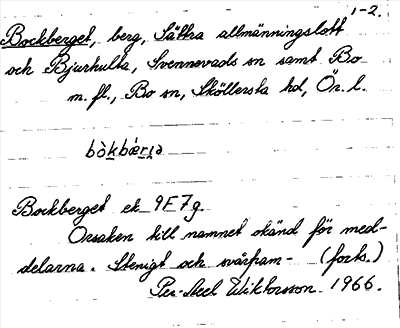 1-2.
Bockberget, berg, Sättra allmänningslott
och Bjurhulta, Svennevads sn samt Bo
m. fl., Bo sn, Sköllersta hd, Ör. l.
bòkbær̨ia
Bockberget ek 9F7g.
Orsaken till namnet okänd för med-
delarna. Stenigt och svårfram- (forts.)
Per-Axel Wiktorsson 1966.